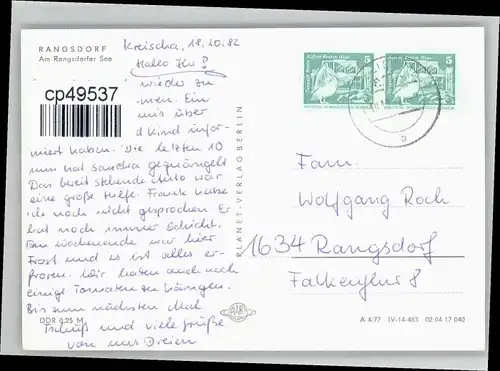 RANGSDORF
Am Rangsdorfer See
Kreischa, 18.10.82
Hallo Ihr
cp49537
wieder zu
Ein
uns über
d Kind infor-
miert haben. Die letzten 10
hat Sandra gequängelt
Das bereit stehende Auto war
eine große Hilfe. Frank habe
ich noch nicht gesprochen Er
hat noch immer Schicht.
Am Wochenende war hier
Frost und es ist alles er-
froren. Wir hatten auch noch
einige Tomaten zu hängen.
Bis zum nächsten Mal
Tschüß und viele Grüße
von uns Dreien
DDR 0,25 M
PLANET-VERLAG BERLIN
5
5
Fam.
Wolfgang Roch
1634 Rangsdorf
Falkenflur 8
A 4/77 IV-14-483 02 04 17 040